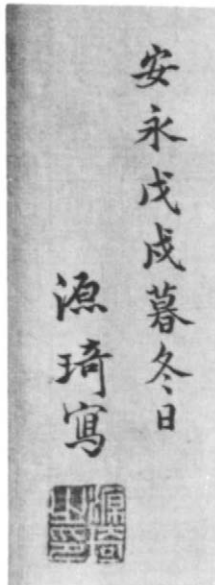 安永戊戌暮冬日
源琦寫
源琦之印